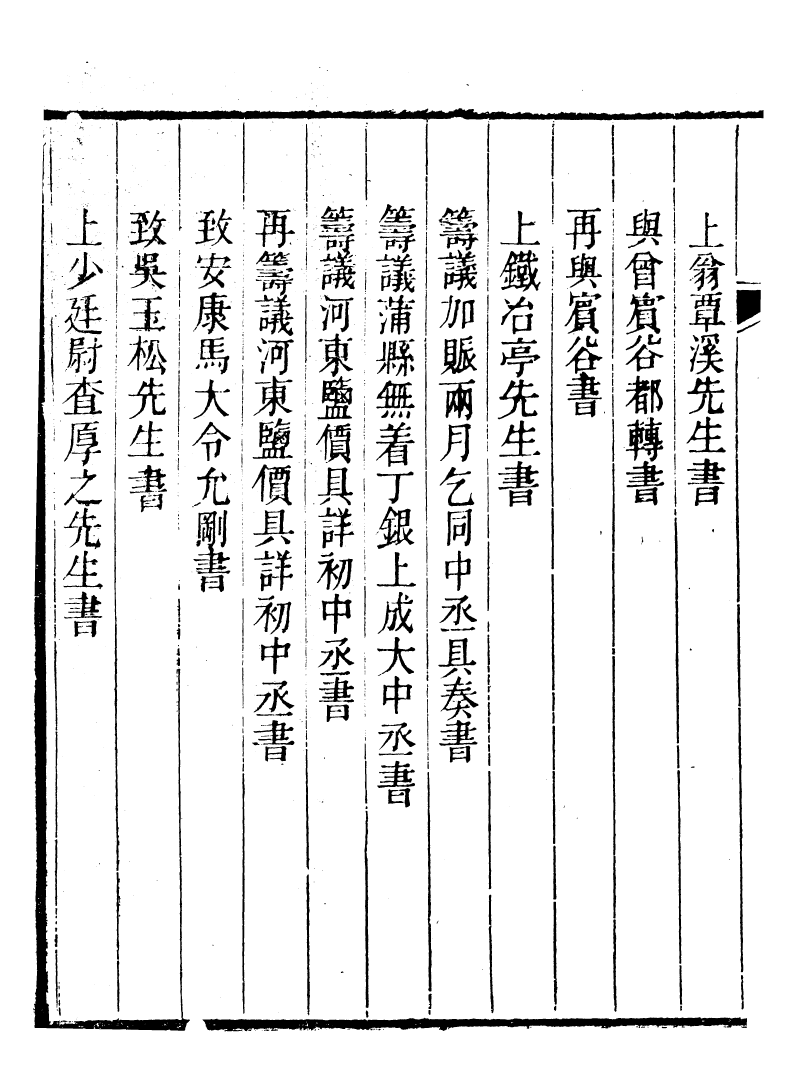 上翁覃溪先生書
與曾賓谷都轉書
再與賓谷書
上鐵冶亭先生書
籌議加賑兩月乞同中丞具奏書
籌議蒲縣無着丁銀上成大中丞書
籌議河東鹽價具詳初中丞書
再籌議河東鹽價具詳初中丞書
致安康馬大令允剛書
致吳玉松先生書
上少廷尉查厚之先生書